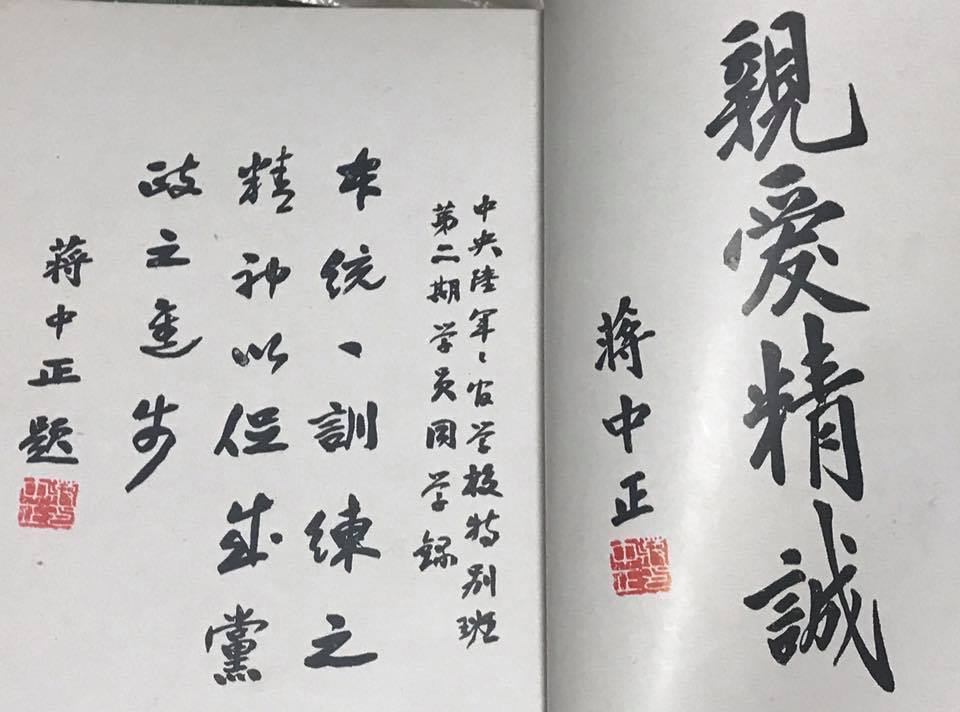 親愛精誠
蔣中正
中央陸軍々官学校特别班
第二期学员同学録
本統一訓練之
精神以促成黨
政之進步
蔣中正題